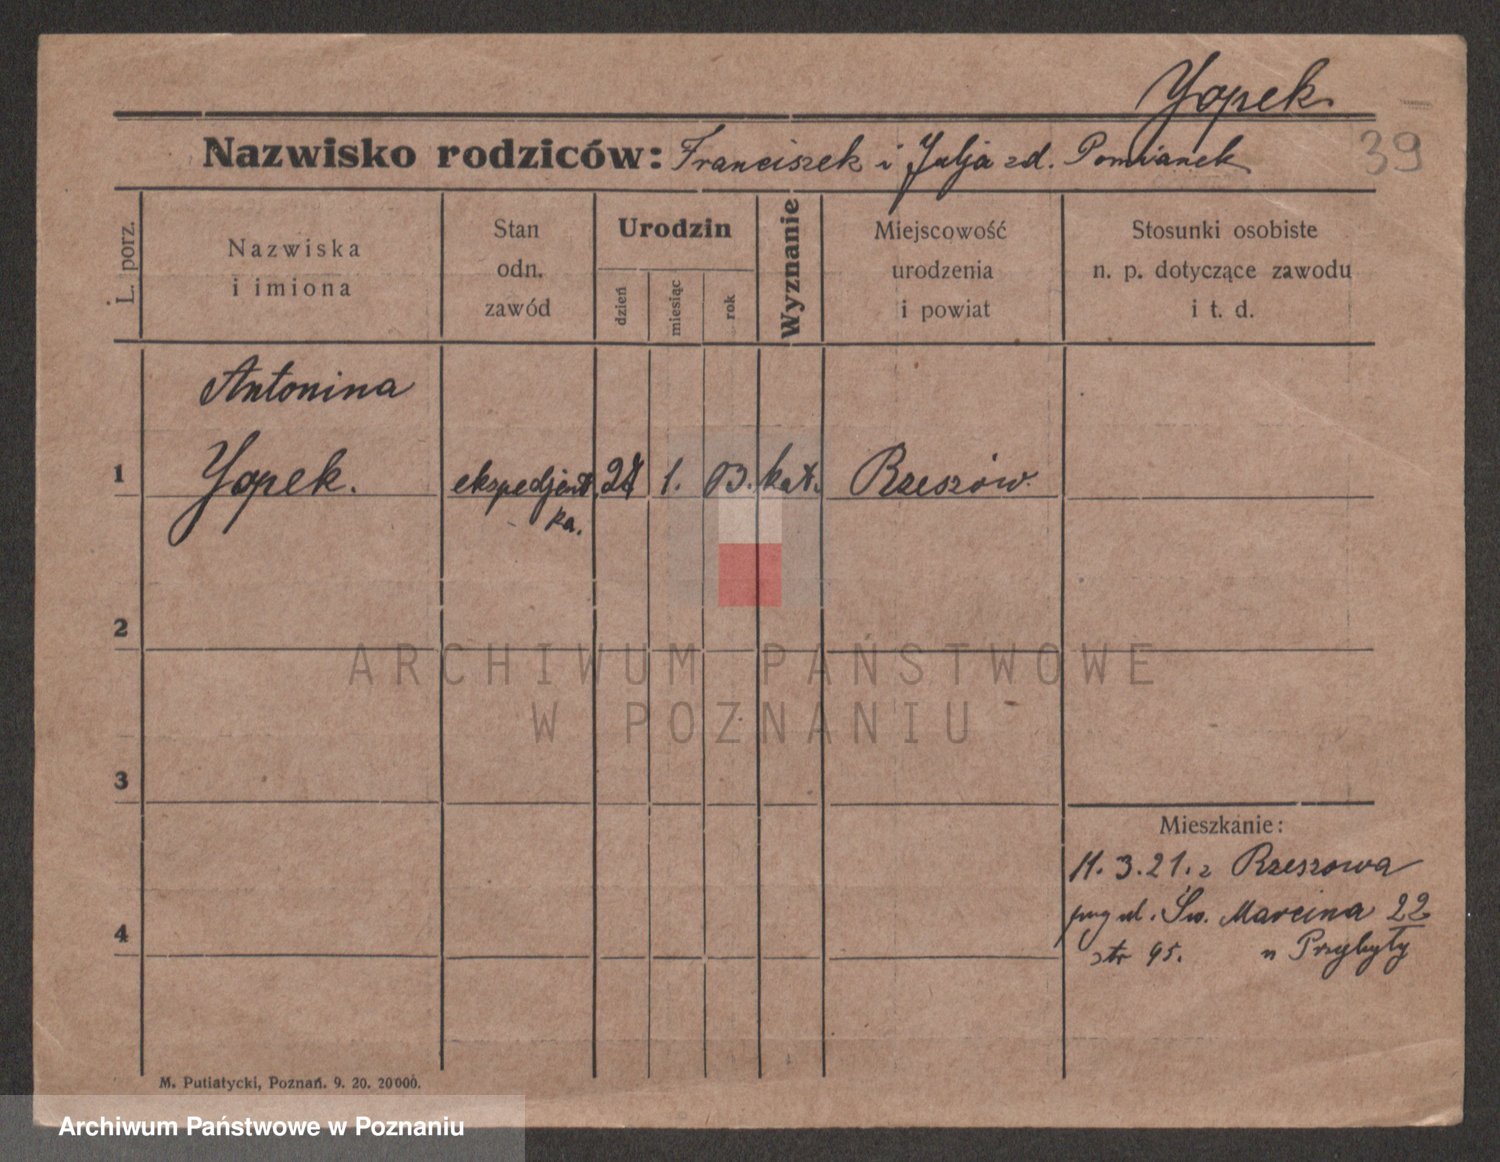 Yopek
Nazwisko rodziców: Franciszek i Julja zd. Pomianek
39
L. porz.
Nazwiska
i imiona
Stan
odn.
zawód
Urodzin
dzień
miesiąc
rok
Wyznanie
Miejscowość
urodzenia
i powiat
Stosunki osobiste
n. p. dotyczące zawodu
i t. d.
Antonina
1 Yopek. ekspedjent 1. 03. kat. Rzeszów.
ka.
2
ARCHIWUM PAŃSTWOWE
W POZNANIU
3
Mieszkanie:
11.3.21. z Rzeszowa
ul. Św. Marcina 22
4
str 95. u Przybyły
M. Putiatycki, Poznań. 9. 20. 20000.
Archiwum Państwowe w Poznaniu